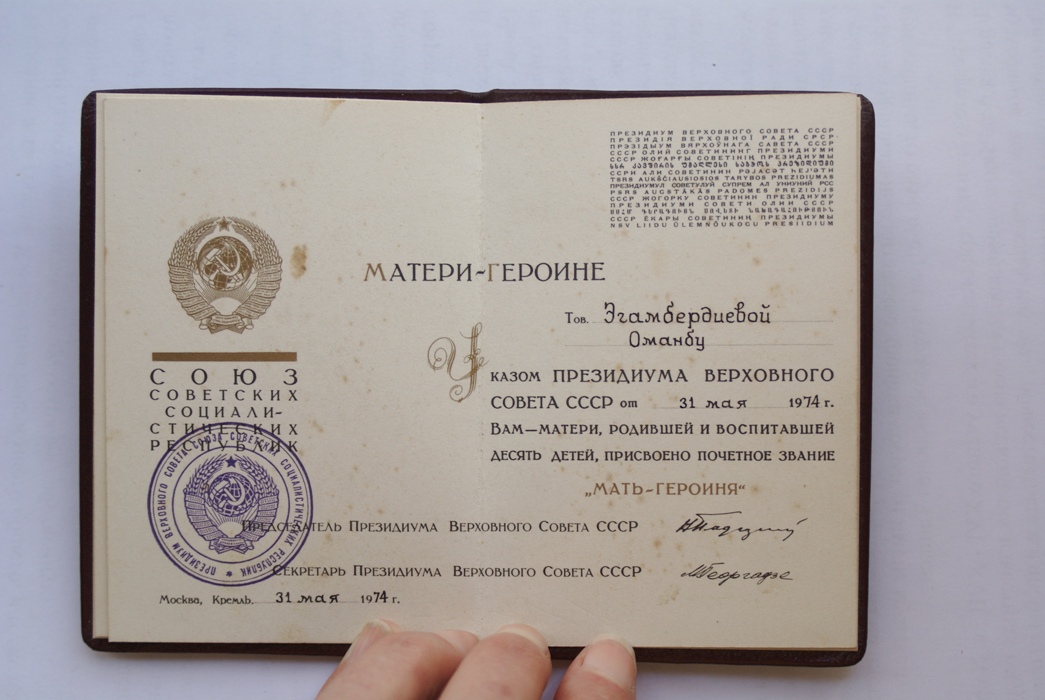 СОЮЗ
СОВЕТСКИХ
СОЦИАЛИ-
СТИЧЕСКИХ
РЕСПУБЛИК
ПРЕЗИДИУМ ВЕРХОВНОГО СОВЕТА СОЮЗА СОВЕТСКИХ СОЦИАЛИСТИЧЕСКИХ РЕСПУБЛИК
ПРЕЗИДИУМ ВЕРХОВНОГО СОВЕТА СССР
ПРЕЗИДІЯ ВЕРХОВНОЇ РАДИ СРСР
ПРЭЗІДЫУМ ВЯРХОЎНАГА САВЕТА СССР
СССР ОЛИЙ СОВЕТИНИНГ ПРЕЗИДИУМИ
СССР ЖОҒАРҒЫ СОВЕТІНІҢ ПРЕЗИДИУМЫ
ССРИ АЛИ СОВЕТИНИН РӘЈАСӘТ ҺЕЈӘТИ
TSRS AUKŠČIAUSIOSIOS TARYBOS PREZIDIUMAS
ПРЕЗИДИУМУЛ СОВЕТУЛУЙ СУПРЕМ АЛ УНИУНИЙ РСС
PSRS AUGSTĀKĀS PADOMES PREZIDIJS
СССР ЖОГОРКУ СОВЕТИНИН ПРЕЗИДИУМУ
ПРЕЗИДИУМИ СОВЕТИ ОЛИИ СССР
СССР ЁКАРЫ СОВЕТИНИҢ ПРЕЗИДИУМЫ
NSV LIIDU ÜLEMNÕUKOGU PRESIIDIUM
МАТЕРИ-ГЕРОИНЕ
Тов. Эгамбердиевой
Оманбу
УКАЗОМ ПРЕЗИДИУМА ВЕРХОВНОГО
СОВЕТА СССР от 31 мая 1974 г.
ВАМ—МАТЕРИ, РОДИВШЕЙ И ВОСПИТАВШЕЙ
ДЕСЯТЬ ДЕТЕЙ, ПРИСВОЕНО ПОЧЕТНОЕ ЗВАНИЕ
„МАТЬ-ГЕРОИНЯ“
ПРЕДСЕДАТЕЛЬ ПРЕЗИДИУМА ВЕРХОВНОГО СОВЕТА СССР
СЕКРЕТАРЬ ПРЕЗИДИУМА ВЕРХОВНОГО СОВЕТА СССР МГеоргадзе
Москва, Кремль. 31 мая 1974 г.